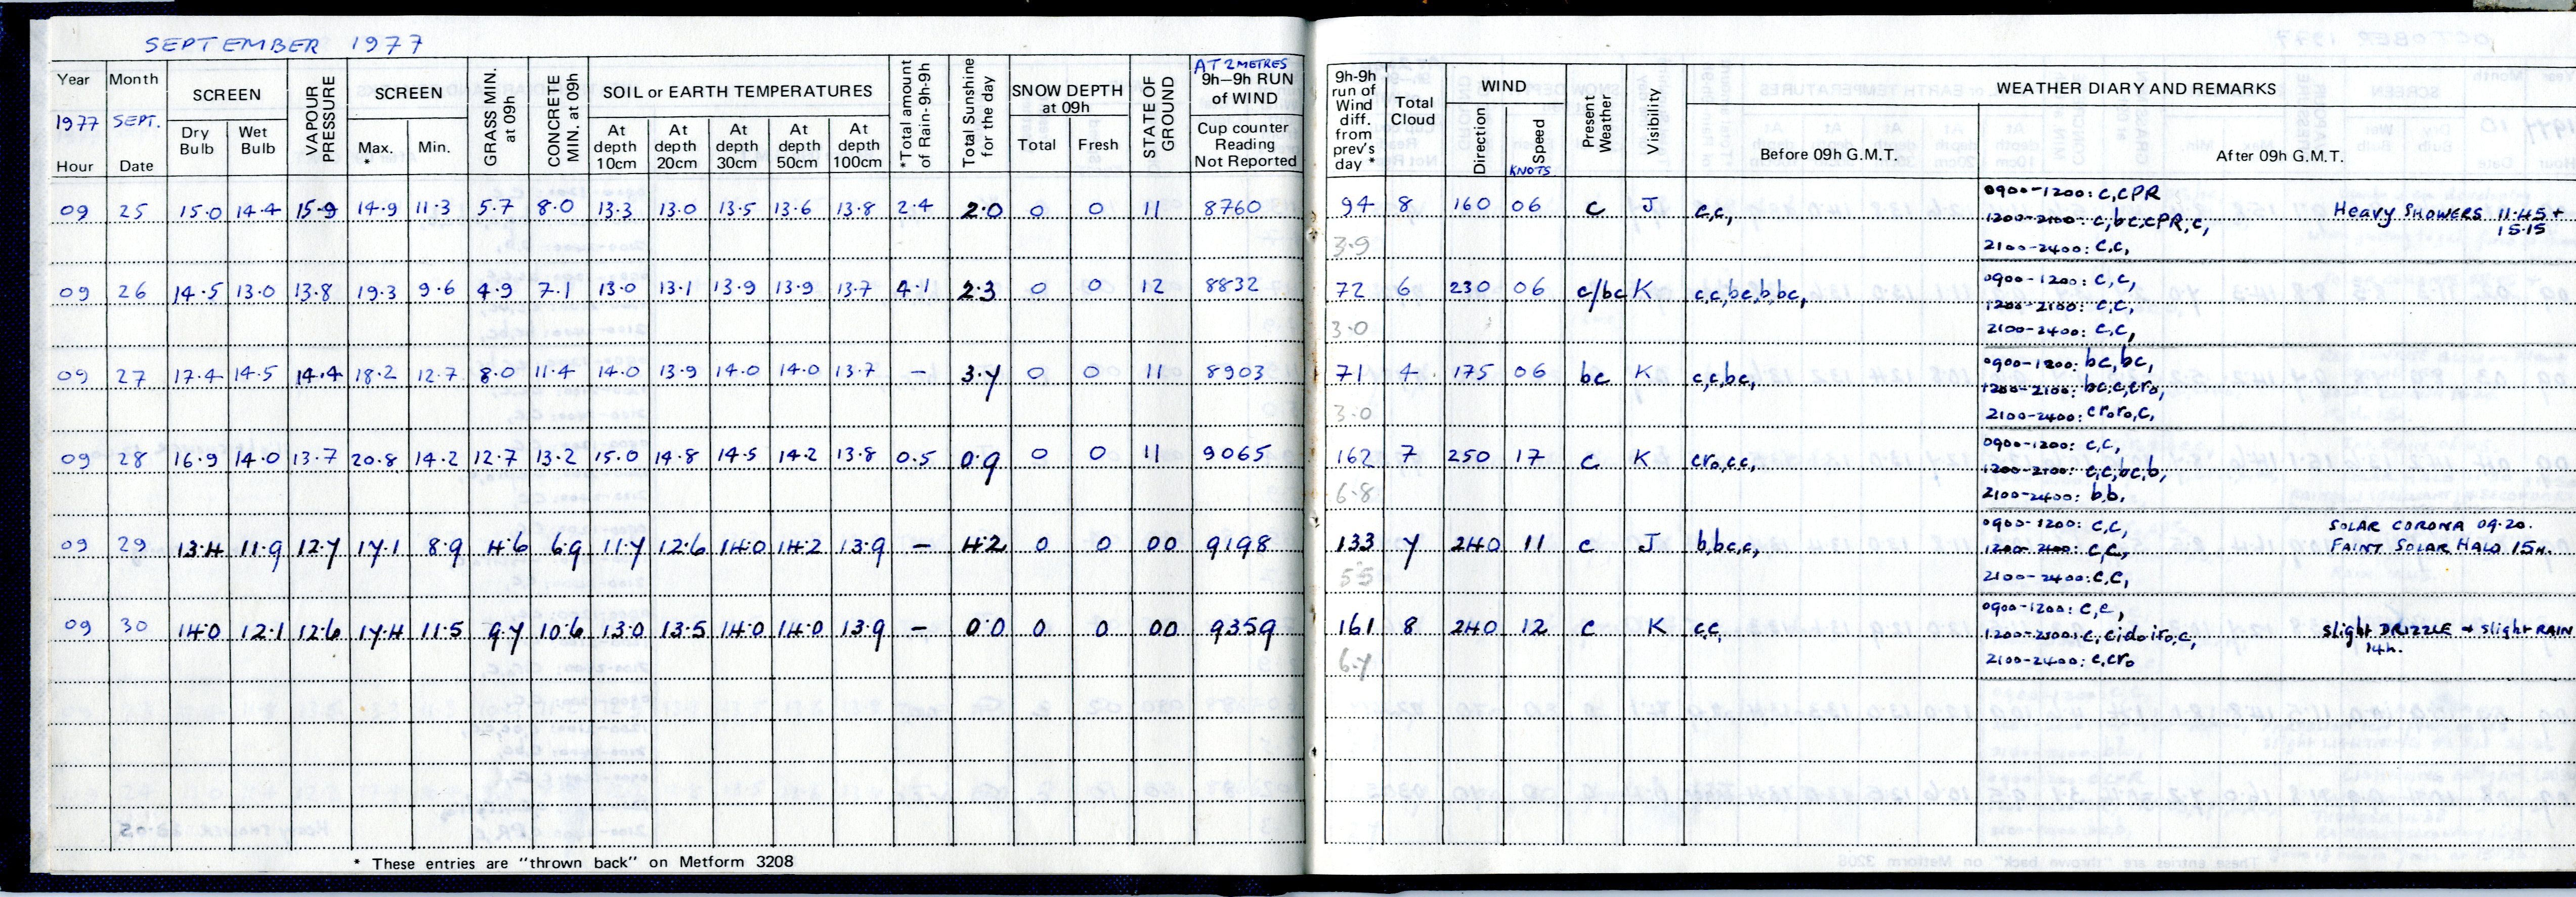 SEPTEMBER 1977
Year Month SCREEN VAPOUR PRESSURE SCREEN GRASS MIN. at 09h CONCRETE MIN. at 09h SOIL or EARTH TEMPERATURES *Total amount of Rain-9h-9h Total Sunshine for the day SNOW DEPTH at 09h STATE OF GROUND AT 2 METRES 9h–9h RUN of WIND 9h-9h run of Wind diff. from prev's day * Total Cloud WIND Present Weather Visibility WEATHER DIARY AND REMARKS
1977 SEPT. Dry Bulb Wet Bulb Max. * Min. At depth 10cm At depth 20cm At depth 30cm At depth 50cm At depth 100cm Total Fresh Cup counter Reading Not Reported Direction Speed KNOTS Before 09h G.M.T. After 09h G.M.T.
Hour Date
0900-1200: c,cPR
09 25 15.0 14.4 15.9 14.9 11.3 5.7 8.0 13.3 13.0 13.5 13.6 13.8 2.4 2.0 0 0 11 8760 94 8 160 06 c J c,c, 1200-2100: c,bc,cPR,c, Heavy SHOWERS 11.45 + 15.15
3.9 2100-2400: c,c,
0900-1200: c,c,
09 26 14.5 13.0 13.8 19.3 9.6 4.9 7.1 13.0 13.1 13.9 13.9 13.7 4.1 2.3 0 0 12 8832 72 6 230 06 c/bc K c,c,bc,b,bc, 1200-2100: c,c,
3.0 2100-2400: c,c,
0900-1200: bc,bc,
09 27 17.4 14.5 14.4 18.2 12.7 8.0 11.4 14.0 13.9 14.0 14.0 13.7 – 3.7 0 0 11 8903 71 4 175 06 bc K c,c,bc, 1200-2100: bc,c,cro,
3.0 2100-2400: croro,c,
0900-1200: c,c,
09 28 16.9 14.0 13.7 20.8 14.2 12.7 13.2 15.0 14.8 14.5 14.2 13.8 0.5 0.9 0 0 11 9065 162 7 250 17 c K cro,c,c, 1200-2100: c,c,bc,b,
6.8 2100-2400: b,b,
0900-1200: c,c, SOLAR CORONA 09.20.
09 29 13.4 11.9 12.7 17.1 8.9 4.6 6.9 11.7 12.6 14.0 14.2 13.9 – 4.2 0 0 00 9198 133 7 240 11 c J b,bc,c, 1200-2100: c,c, FAINT SOLAR HALO 15h.
5.5 2100-2400: c,c,
0900-1200: c,c,
09 30 14.0 12.1 12.6 17.4 11.5 9.7 10.6 13.0 13.5 14.0 14.0 13.9 – 0.0 0 0 00 9359 161 8 240 12 c K c,c, 1200-2100: c,cidoiro,c, slight DRIZZLE + slight RAIN 14h.
6.7 2100-2400: c,cro
* These entries are "thrown back" on Metform 3208